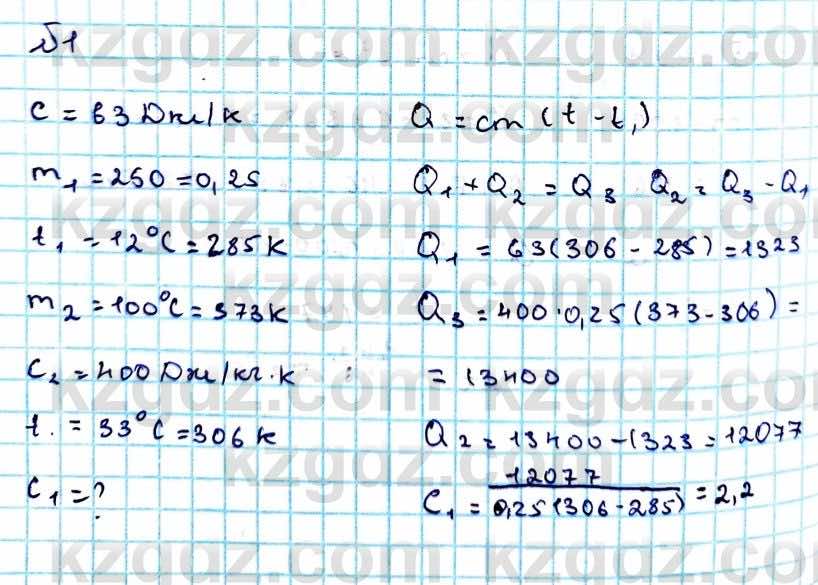 №1
c = 63 Дж/к
m₁ = 250 = 0,25
t₁ = 12°C = 285к
m₂ = 100°C = 373к
c₂ = 400 Дж/кг·к
t. = 33°C = 306к
c₁ = ?
Q = cm (t - t₁)
Q₁ + Q₂ = Q₃ Q₂ = Q₃ - Q₁
Q₁ = 63(306 - 285) = 1323
Q₃ = 400·0,25(373-306) =
= 13400
Q₂ = 13400-1323 = 12077
c₁ = 12077 / 0,25(306-285) = 2,2
kzgdz.com